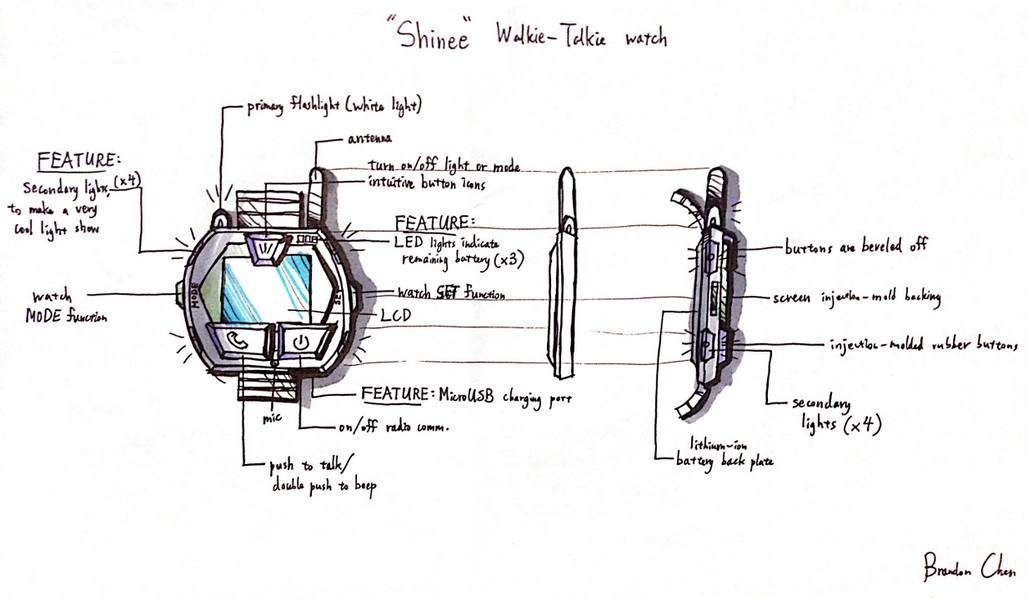 "Shinee" Walkie-Talkie watch
primary flashlight (white light)
antenna
turn on/off light or mode
intuitive button icons
FEATURE:
Secondary lights (x4)
to make a very
cool light show
FEATURE:
LED lights indicate
remaining battery (x3)
watch
MODE function
MODE
SET
watch SET function
LCD
FEATURE: MicroUSB charging port
mic
on/off radio comm.
push to talk/
double push to beep
buttons are beveled off
screen injection-mold backing
injection-molded rubber buttons
secondary
lights (x4)
lithium-ion
battery back plate
Brandon Chen